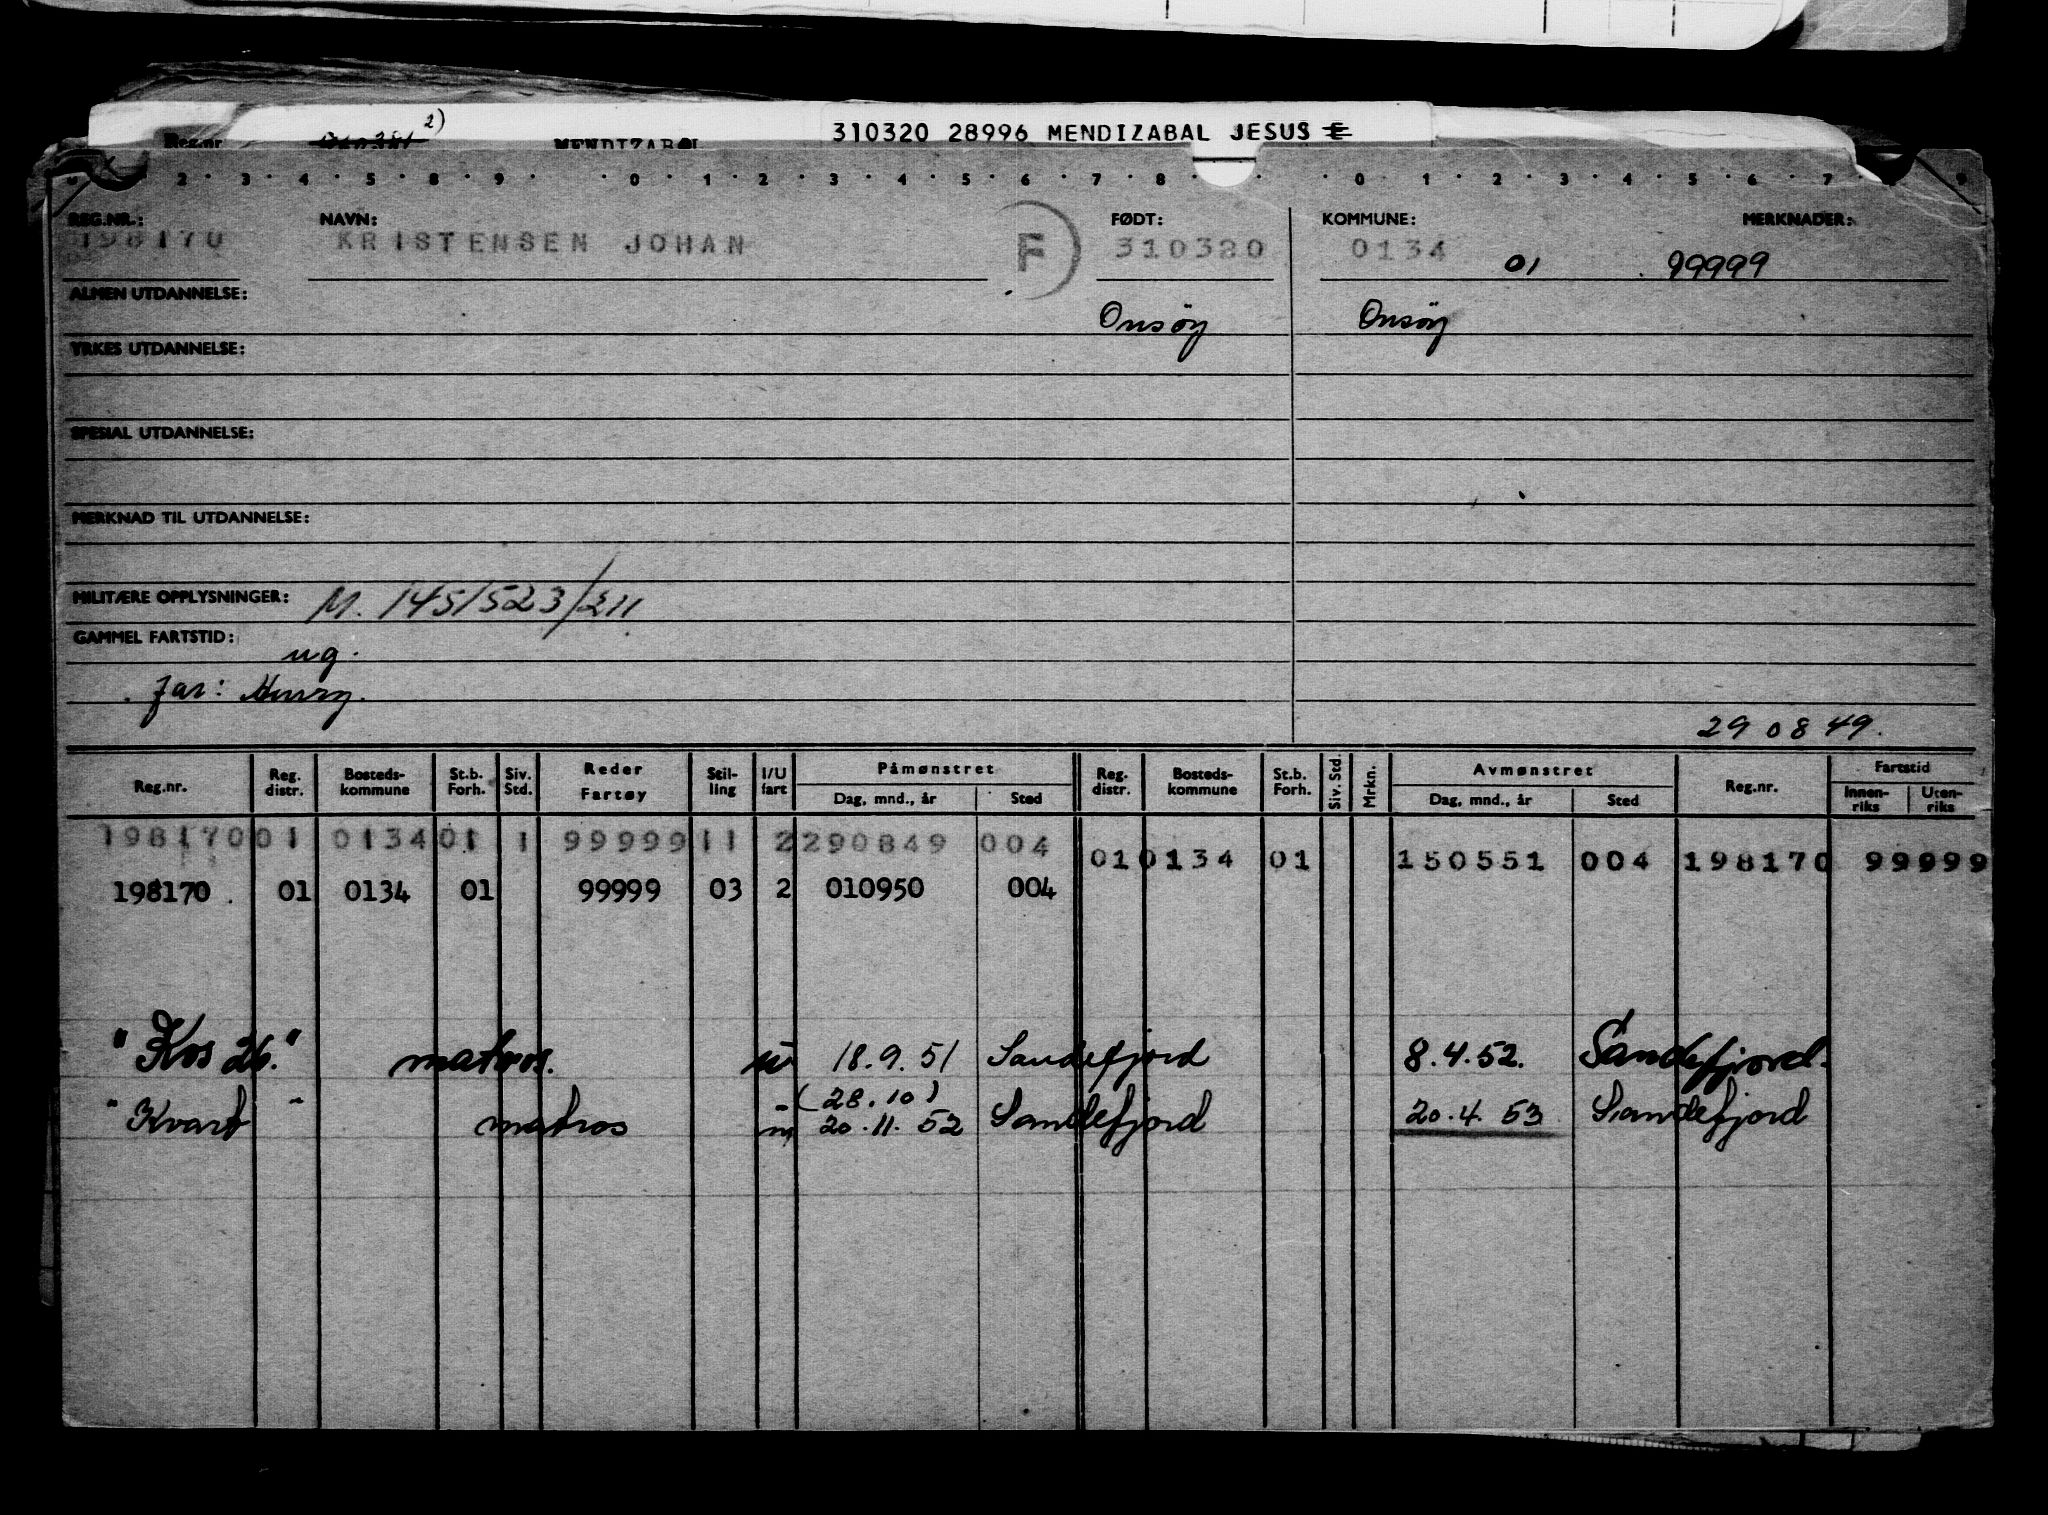 2)
Reg.nr MENDIZABAL 310320 28996 MENDIZABAL JESUS E
2 3 4 5 8 9 0 1 2 3 4 5 6 7 8 0 1 2 3 4 5 6 7 8 9
REG.NR.: NAVN: FØDT: KOMMUNE: MERKNADER:
198170 KRISTENSEN JOHAN F 310320 0134 01 99999
ALMEN UTDANNELSE:
Onsöy Onsöy
YRKES UTDANNELSE:
SPESIAL UTDANNELSE:
MERKNAD TIL UTDANNELSE:
MILITÆRE OPPLYSNINGER: M. 1451523/211
GAMMEL FARTSTID:
ug.
Far: Henry.
29 08 49.
Reg.nr. Reg. distr. Bosteds-kommune St.b. Forh. Siv. Std. Reder Fartøy Stil-ling I/U fart Påmønstret Dag, mnd., år Sted Reg. distr. Bosteds-kommune St.b. Forh. Siv. Std. Mrkn. Avmønstret Dag, mnd., år Sted Reg.nr. Fartstid Innen-riks Uten-riks
198170 01 0134 01 1 99999 11 2 290849 004 01 0134 01 150551 004 198170 99999
198170 . 01 0134 01 99999 03 2 010950 004
"Kos 26." matros. u 18.9.51 Sandefjord 8.4.52. Sandefjord.
(28.10)
"Kvart" matros u 20.11.52 Sandefjord 20.4.53 Sandefjord